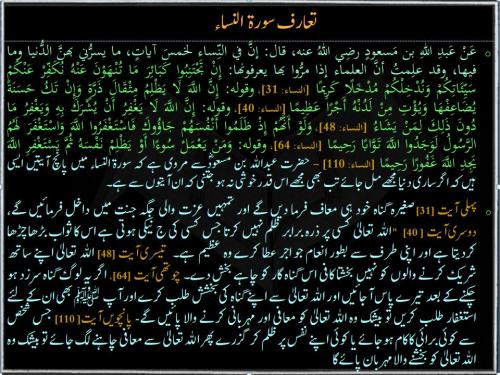 تعارف سورۃ النساء
عَنْ عَبدِ اللَّهِ بن مَسعودٍ رضِي اللَّهُ عنه، قال: إنَّ في النِّساءِ لخمسَ آياتٍ، ما يسرُّني بهنَّ الدُّنيا وما
فيها، وقد علِمتُ أنَّ العلماءَ إذا مرُّوا بها يعرفونَها: إِنْ تَجْتَنِبُوا كَبَائِرَ مَا تُنْهَوْنَ عَنْهُ نُكَفِّرْ عَنْكُمْ
سَيِّئَاتِكُمْ وَنُدْخِلْكُمْ مُدْخَلًا كَرِيمًا [النساء: 31]، وقوله: إِنَّ اللَّهَ لَا يَظْلِمُ مِثْقَالَ ذَرَّةٍ وَإِنْ تَكُ حَسَنَةً
يُضَاعِفْهَا وَيُؤْتِ مِنْ لَدُنْهُ أَجْرًا عَظِيمًا [النساء: 40]، وقوله: إِنَّ اللَّهَ لَا يَغْفِرُ أَنْ يُشْرَكَ بِهِ وَيَغْفِرُ مَا
دُونَ ذَلِكَ لِمَنْ يَشَاءُ [النساء: 48]، وَلَوْ أَنَّهُمْ إِذْ ظَلَمُوا أَنْفُسَهُمْ جَاؤُوكَ فَاسْتَغْفَرُوا اللَّهَ وَاسْتَغْفَرَ لَهُمُ
الرَّسُولُ لَوَجَدُوا اللَّهَ تَوَّابًا رَحِيمًا [النساء: 64]، وقوله: وَمَنْ يَعْمَلْ سُوءًا أَوْ يَظْلِمْ نَفْسَهُ ثُمَّ يَسْتَغْفِرِ اللَّهَ
يَجِدِ اللَّهَ غَفُورًا رَحِيمًا [النساء: 110] – حضرت عبداللہ بن مسعودؓ سے مروی ہے کہ سورۃ النساء میں پانچ آیتیں ایسی
ہیں کہ اگر ساری دنیا مجھے مل جائے تب بھی مجھے اس قدر خوشی نہ ہو جتنی کہ ان آیتوں سے ہے۔
پہلی آیت [31] صغیرہ گناہ خود ہی معاف فرما دیں گے اور تمہیں عزت والی جگہ جنت میں داخل فرمائیں گے،
دوسری آیت [40] "اللہ تعالیٰ کسی پر ذرہ برابر ظلم نہیں کرتا جس کسی کی جو نیکی ہوتی ہے اس کا ثواب بڑھا چڑھا
کر دیتا ہے اور اپنی طرف سے بطور انعام جو اجر عطا کرے وہ عظیم ہے۔ تیسری آیت [48] اللہ تعالیٰ اپنے ساتھ
شریک کرنے والوں کو نہیں بخشتا کافی اس گناہ گار کو جا ہے بخش دے۔ چوتھی آیت [64]، اگر یہ لوگ گناہ سرزد ہو
چکنے کے بعد تیرے پاس آ جائیں اور اللہ تعالیٰ سے اپنے گناہ کی بخشش طلب کرے اور آپ ﷺ بھی ان کے لئے
استغفار طلب کریں تو بیشک وہ اللہ تعالیٰ کو معافی اور مہربانی کرنے والا پائیں گے۔ پانچویں آیت [110] جس شخص
سے کوئی برائی کا کام ہو جائے یا کوئی اپنے نفس پر ظلم کر گزرے پھر اللہ تعالیٰ سے معافی چاہنے لگ جائے تو بیشک وہ
اللہ تعالیٰ کو بخشنے والا مہربان پائے گا